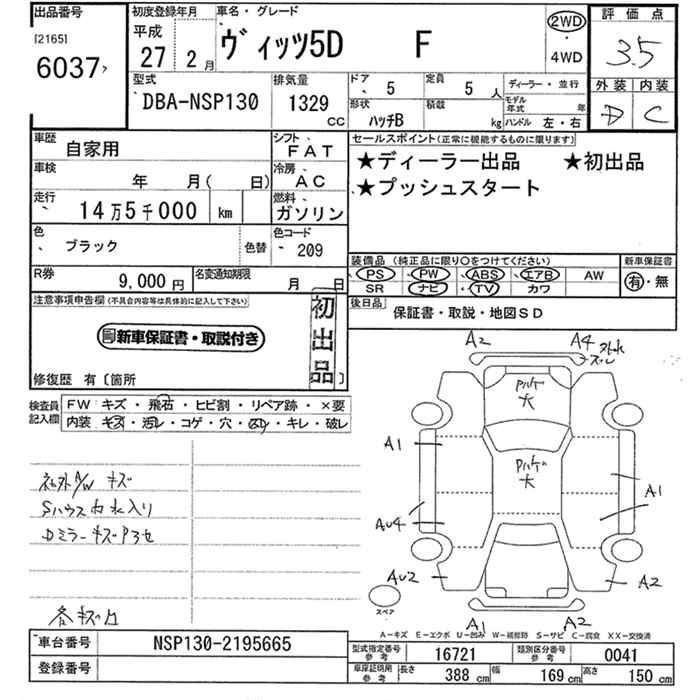 出品番号
[2165]
6037
初度登録年月
平成
27 2月
車名・グレード
ヴィッツ5D F
2WD
・
4WD
評価点
3.5
外装 内装
D C
型式
DBA-NSP130
排気量
1329
CC
ドア
5
定員
5人
ディーラー・並行
形状
ハッチB
積載
kg
モデル年式 年
ハンドル 左・右
車歴
自家用
シフト
FAT
車検
年 月( 日)
冷房
AC
走行
14万5千000 km
燃料
ガソリン
色
ブラック
色替
色コード
209
R券
9,000円
名変通知期限
月 日
セールスポイント(正常に機能するものに限ります)
★ディーラー出品 ★初出品
★プッシュスタート
装備品 (純正品に限り○をつけてください)
PS PW ABS エアB AW
SR ナビ TV カワ
新車保証書
有・無
後日品
保証書・取説・地図SD
注意事項申告欄(不具合内容等は具体的に記入して下さい)
新車保証書・取説付き
初出品
修復歴 有〔箇所
検査員記入欄
FW キズ・飛石・ヒビ割・リペア跡・×要
内装 キズ・汚レ・コゲ・穴・スレ・キレ・破レ
社外A/W キズ
Sハウス内水入り
Dミラーキズ
各キズ凹
A2
A4
A1
A1
AU4
AU2
A2
A1
A2
スペア
A-キズ E-エクボ U-凹み W-補修跡 S-サビ C-腐食 XX-交換済
車台番号
NSP130-2195665
登録番号
型式指定番号
参考
16721
類別区分番号
参考
0041
車庫証明用
参考
長さ
388 cm
幅
169 cm
高さ
150 cm